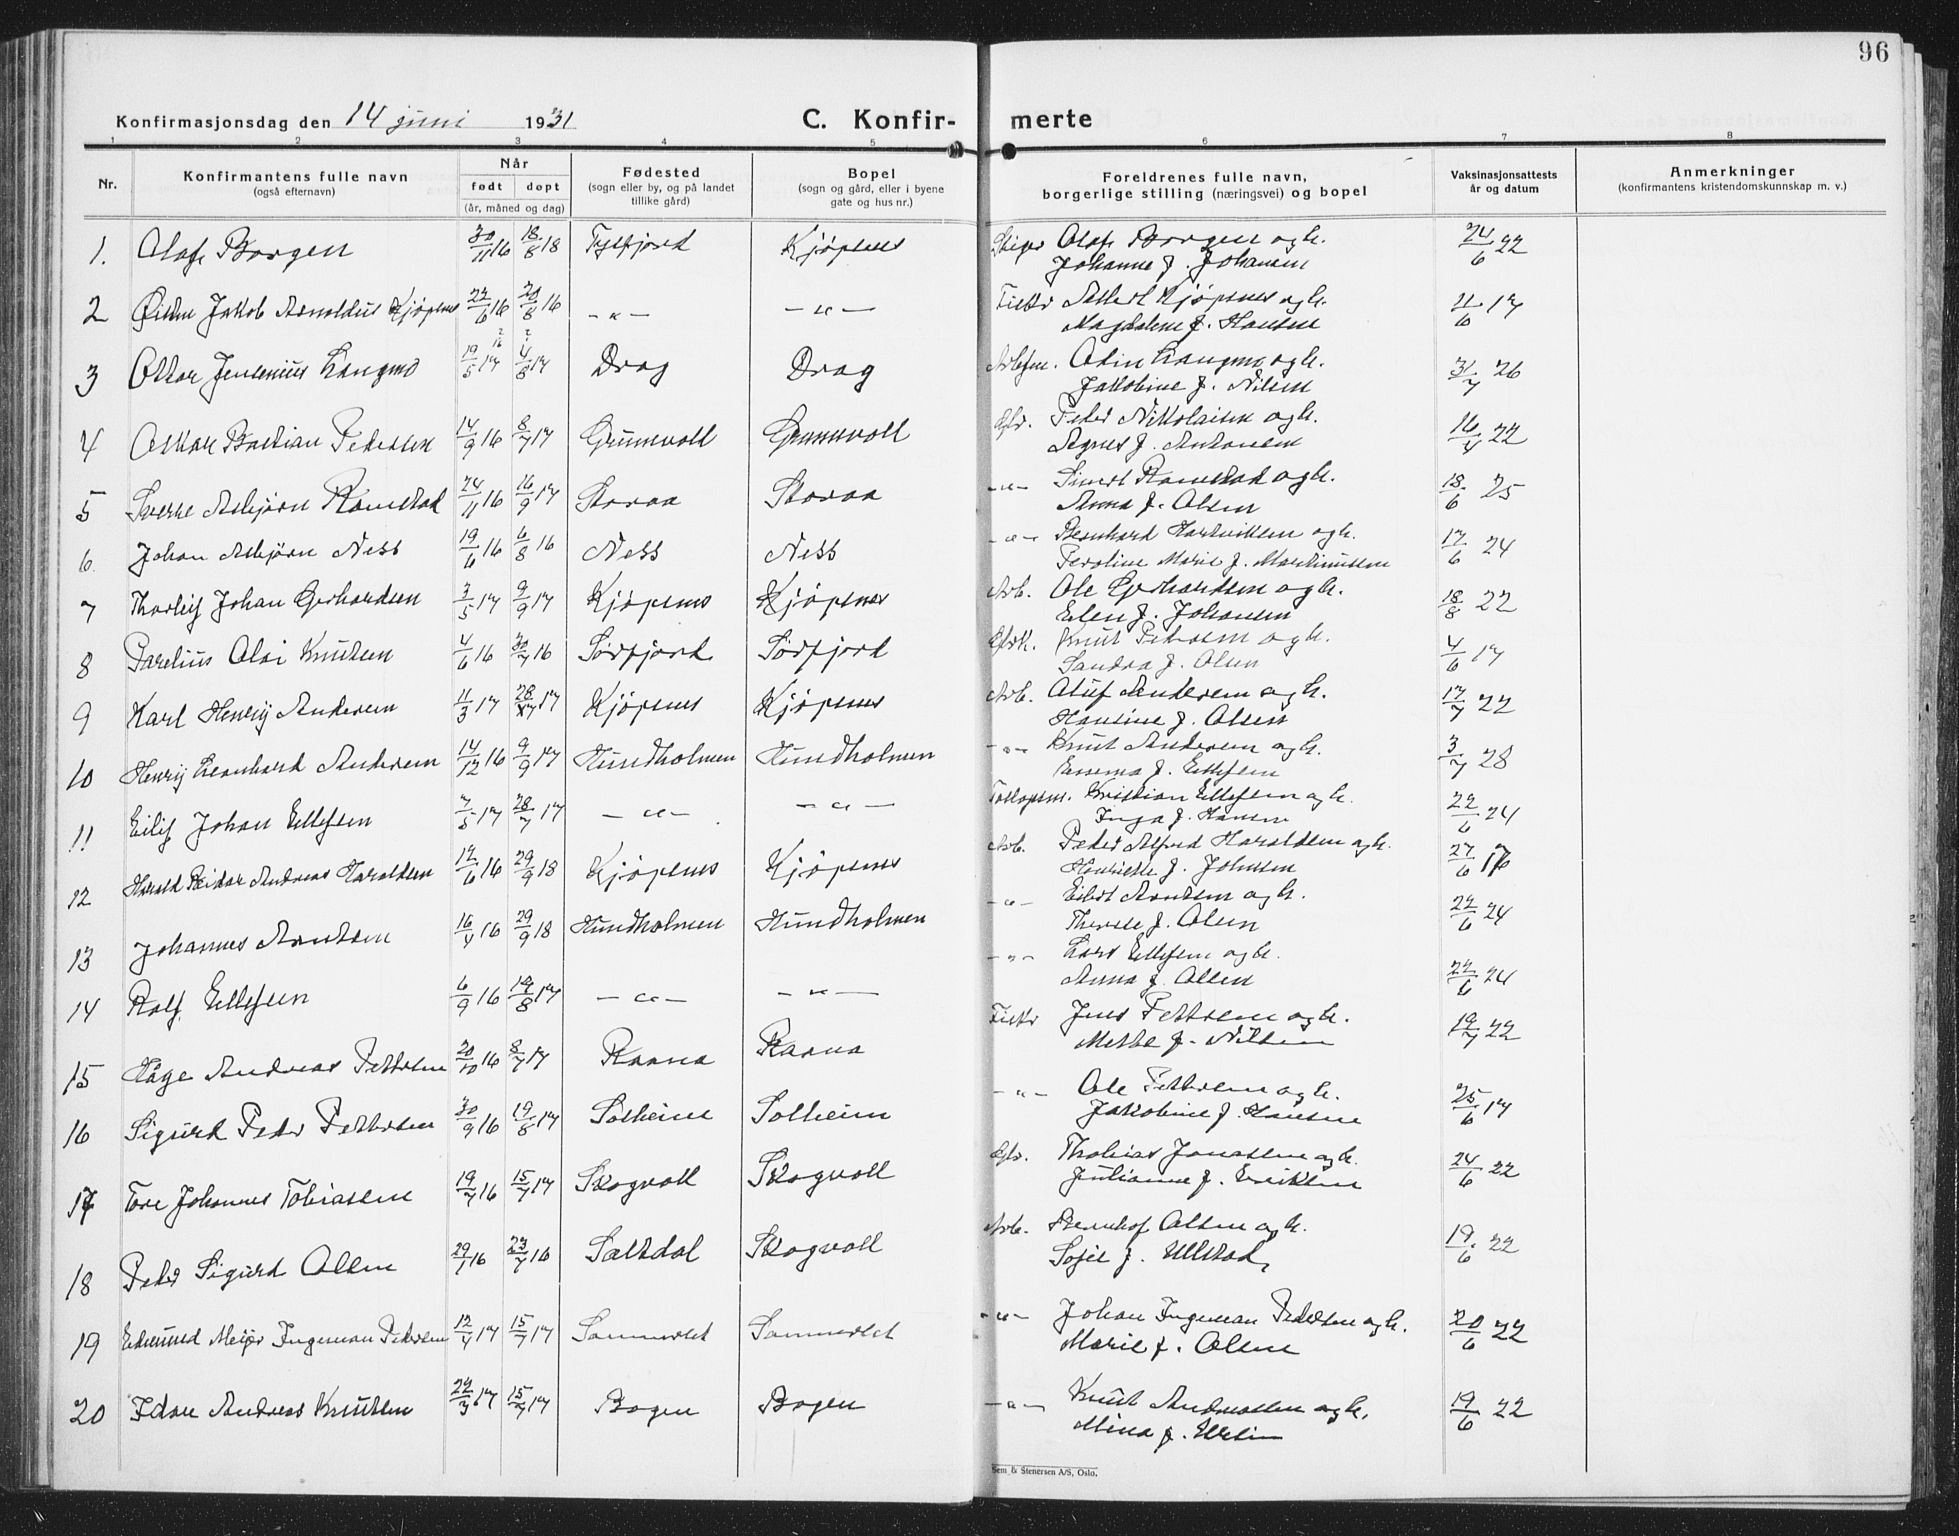 96
Konfirmasjonsdag den 14 juni 1931
C. Konfir- merte
1 2 3 4 5 6 7 8
Nr. Konfirmantens fulle navn (også efternavn) Når født døpt (år, måned og dag) Fødested (sogn eller by, og på landet tillike gård) Bopel (sogn og gård, eller i byene gate og hus nr.) Foreldrenes fulle navn, borgerlige stilling (næringsvei) og bopel Vaksinasjonsattests år og datum Anmerkninger (konfirmantens kristendomskunnskap m. v.)
1. Olaf Borgen 30/11 16 18/8 18 Tysfjord Kjøpsnes Olaf Borgen og h. 24/6 22
Johanne f. Johansen
2 Jakob Arnoldus Kjøpsnes 22/6 16 20/8 16 -"- -"- Fisker Albert Kjøpsnes og h. 11/6 17
Magdalene f. Hansen
3 Ottar Jensenius Langmo 19/5 17 4/8 17 Drag Drag Odin Langmo og h. 31/7 26
Jakobine f. Nilsen
4 Oskar Bastian Pedersen 14/9 16 8/7 17 Grunnvoll Grunnvoll Gbr. Peder Nikolaisen og h. 16/4 22
Agnes f. Antonsen
5 Sverre Asbjørn Ramstad 24/11 16 16/9 17 Storaa Storaa -"- Sivert Ramstad og h. 18/6 25
Anna f. Olsen
6 Johan Asbjørn Ness 19/6 16 6/8 16 Ness Ness -"- Bernhard Hartviksen og h. 17/6 24
Peroline Marie f. Martinussen
7 Thorleif Johan Gerhardsen 3/5 17 9/9 17 Kjøpsnes Kjøpsnes Arb. Ole Gerhardsen og h. 18/8 22
Elen f. Johansen
8 Parelius Olai Knutsen 4/6 16 30/7 16 Sørfjord Sørfjord Knut Pedersen og h. 4/6 17
Sandra f. Olsen
9 Karl Henry Andersen 11/3 17 28/7 17 Kjøpsnes Kjøpsnes Arb. Oluf Andersen og h. 17/7 22
Hansine f. Olsen
10 Henry Leonhard Andersen 14/12 16 9/9 17 Hundholmen Hundholmen -"- Knut Andersen og h. 3/7 28
Emma f. Ellefsen
11 Eilif Johan Ellefsen 7/5 17 28/7 17 -"- -"- Kristian Ellefsen og h. 22/6 24
Inga f. Hansen
12 Harald Reidar Andreas Haraldsen 12/6 16 29/9 18 Kjøpsnes Kjøpsnes Arb. Peder Alfred Haraldsen og h. 27/6 17
Henriette f. Johnsen
13 Johannes Arntsen 16/4 16 29/9 18 Hundholmen Hundholmen -"- Eilert Arntsen og h. 22/6 24
Therese f. Olsen
14 Rolf Ellefsen 6/9 16 19/8 17 -"- -"- -"- Lars Ellefsen og h. 22/6 24
Anna f. Olsen
15 Håge Andreas Pettersen 20/10 16 8/7 17 Raana Raana Fisker Jens Pettersen og h. 19/7 22
Mette f. Nilsen
16 Sigurd Peder Pettersen 30/9 16 19/8 17 Solheim Solheim -"- Ole Pettersen og h. 25/6 17
Jakobine f. Hansen
17 Tore Johannes Tobiassen 19/7 16 15/7 17 Skogvoll Skogvoll Gbr. Thobias Jonassen og h. 24/6 22
Julianne f. Eriksen
18 Peder Sigurd Olsen 29/1 16 23/7 16 Saltdal Skogvoll Arb. Bernhof Olsen og h. 19/6 22
Sofie f. Ulstad,
19 Edmund Meyer Ingeman Pedersen 12/4 17 15/7 17 Sommerset Sommerset -"- Johan Ingeman Pedersen og h. 20/6 22
Marie f. Olsen
20 Idar Andreas Knutsen 22/3 17 15/7 17 Bogen Bogen -"- Knut Andreassen og h. 19/6 22
Mina f.
Sem & Stenersen A/S, Oslo.